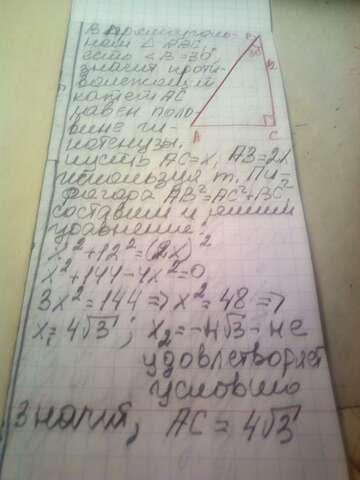 В прямоуголь-
ном △ ABC,
есть <B=30°,
значит проти-
волежащий
катет AC
равен поло-
вине ги-
потенузы,
пусть AC=x, AB=2x
используя т. Пи-
фагора AB²=AC²+BC²,
составим и решим
уравнение:
x²+12²=(2x)²
x²+144-4x²=0
3x²=144=>x²=48=>
x₁=4√3; x₂=-4√3-не
удовлетворяет
условию
значит, AC=4√3
B
30°
12
A
C